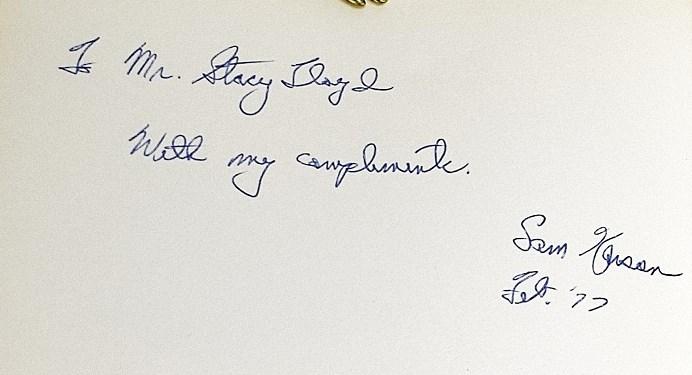 To Mr. Stacy Lloyd
With my compliments.
Sam
Feb. '77